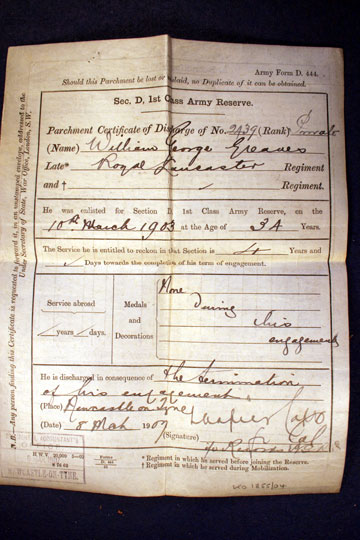 Army Form D. 444.
Should this Parchment be lost or mislaid, no Duplicate of it can be obtained.
Sec. D, 1st Class Army Reserve.
Parchment Certificate of Discharge of No. 2439 (Rank) Private
(Name) William George Greaves
Late* Royal Lancaster Regiment
and † Regiment.
He was enlisted for Section D, 1st Class Army Reserve, on the
10th March 1903 at the Age of 34 Years.
The Service he is entitled to reckon in that Section is 4 Years and
Days towards the completion of his term of engagement.
Service abroad
years days.
Medals
and
Decorations
None
During
his
engagement
He is discharged in consequence of the termination
of his engagement
(Place) Newcastle on Tyne
(Date) 8 Mar 1907
(Signature)
* Regiment in which he served before joining the Reserve.
† Regiment in which he served during Mobilization.
NEWCASTLE-ON-TYNE.
N.B.—Any person finding this Certificate is requested to forward it, in an unstamped envelope, addressed to the
Under Secretary of State, War Office, London, S.W.